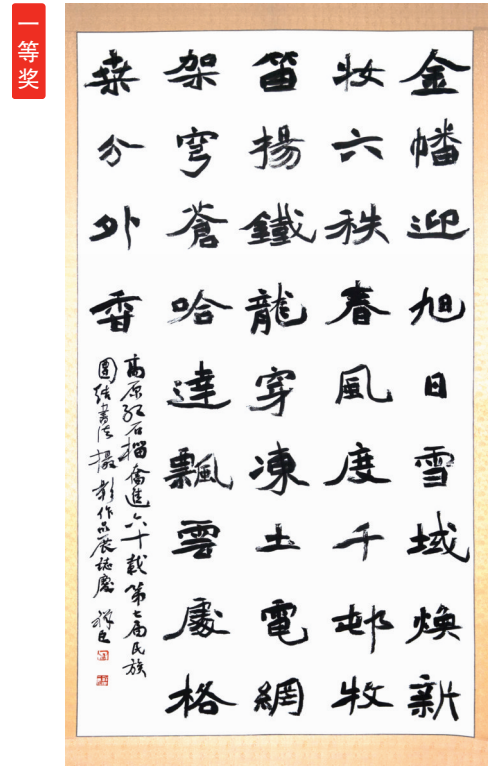 一等奖
金幡迎旭日雪域煥新
妝六秩春風度千邨牧
笛揚鐵龍穿凍土電網
架穹蒼哈達飄雲處格
桑分外香
高原红石榴奮進六十載第七届民族
團结書法攝影作品展誌慶